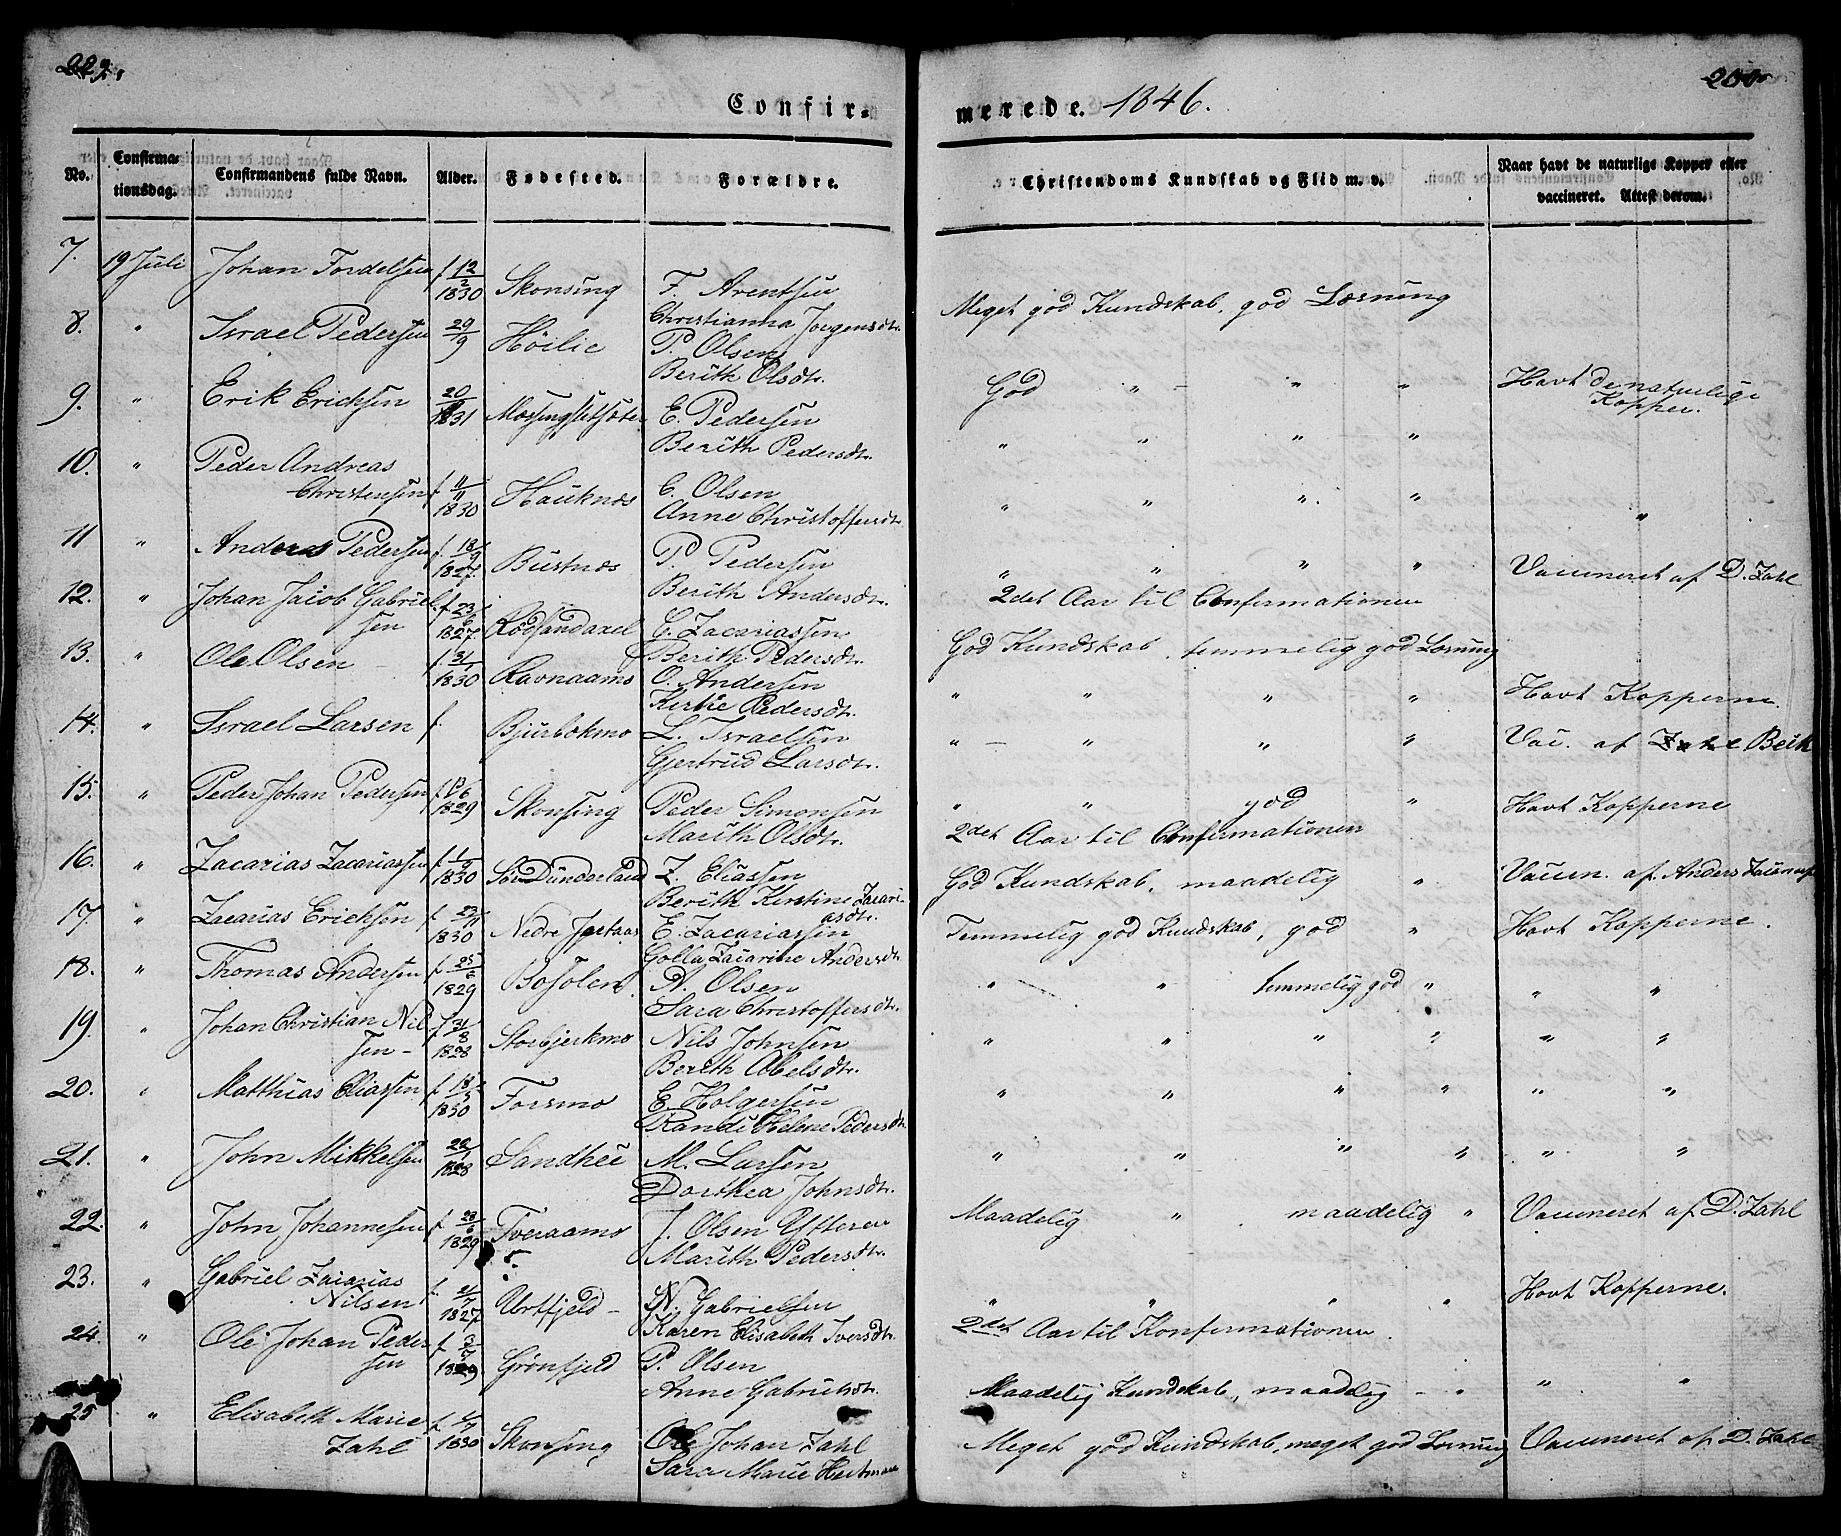 229.
230
Confir-
merede. 1846.
No.
Confirma-
tionsdag.
Confirmandens fulde Navn.
Alder.
Fødested.
Forældre.
Christendoms Kundskab og Flid m. v.
Naar havt de naturlige Kopper eller
vaccineret. Attest derom.
7. 19 Juli Johan Fordelsen f. 12/2 1830 Skonsing F. Arentsen
Christianna Jørgensdtr.
Meget god Kundskab, god Læsning
8. " Israel Pedersen 29/9 Høilie P. Olsen
Berith Olsdtr.
God " - " " Havt de naturlige
Kopper.
9. " Erik Ericksen 20/ 1831 E. Pedersen
Berith Pedersdtr.
" " " "
10. " Peder Andreas
Christensen f. 11/11 1830 Hauknæs C. Olsen
Anne Christoffersdtr.
" " " " "
11 " Anders Pedersen f. 18/9 1827. Bustnæs P. Pedersen
Berith Andersdtr.
" " " " Vaccineret af D. Zahl
2det Aar til Confirmationen
12. " Johan Jacob Gabriel
sen f. 23/6 1827. Rødsandaxel C. Zacariassen
Berith Pedersdtr.
God Kundskab, temmelig god Læsning
13. " Ole Olsen f. 31/1 1830 Ravnaamo O. Andersen
Kirstie Pedersdtr.
" " " " Havt Kopperne.
14. " Israel Larsen f. Bjurbekmo L. Israelsen
Gjertrud Larsdtr.
" - " " " Vac. af Beck
15. " Peder Johan Pedersen f. 1829 Skonsing Peder Simonsen
Marith Olsdtr.
" " god " Havt Kopperne
2det Aar til Confirmationen
16. " Zacarias Zacariassen f. 1830 Sør Dunderland Z. Eliassen
Berith Kirstine Zacari
asdtr.
God Kundskab, maadelig " Vaccin. af Anders
17. " Zacarias Ericksen f. 1830 Nedre E. Zacariassen
Golla Zacarine Andersdtr
Temmelig god Kundskab, god " Havt Kopperne.
18. " Thomas Andersen f. 25/6 1829 Bosolen A. Olsen
Sara Christoffersdtr.
" " temmelig god " " "
19. " Johan Christian Nil
sen - f. 31/8 1828 Storbjerkmo Nils Johnsen
Berith Abelsdtr.
" " " " " "
20. " Matthias Eliassen f. 18/3 1830 Forsmo E. Holgersen
Randi Helene Pedersdtr
" " " " " "
21. " John Mikkelsen 22/1 1828 Sandhei M. Larsen
Dorthea Johnsdtr.
" " " " " "
22. " John Johannesen f. 28/6 1829 Tveraamo J. Olsen Ytteren
Marith Pedersdtr.
Maadelig " maadelig " Vaccineret af D. Zahl
23. " Gabriel Zacarias
Nilsen f. 21/7 1827 Urtfjeld - N. Gabrielsen
Karen Elisabeth Iversdtr.
" " " " Havt Kopperne.
2det Aar til Konfirmationen.
24. " Ole Johan Peder
sen f. 3/7 1829 Grønfjeld P. Olsen
Anne Gabrielsdtr.
Maadelig Kundskab, maadelig - " " "
25 " Elisabeth Marie
Zahl f. 1830 Skonsing Ole Johan Zahl
Sara Marie
Meget god Kundskab, meget god Læsning Vaccineret af D. Zahl